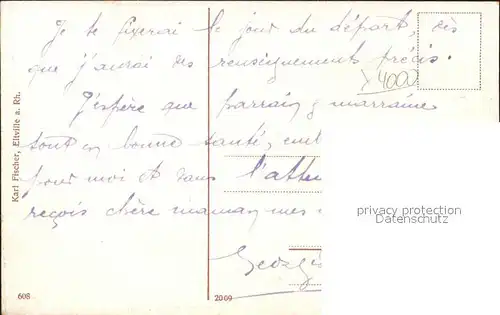 Je te fixerai le jour du départ, dès
que j'aurai des renseignements précis.
4000
J'espère que parrain & marraine
sont en bonne santé, em
pour moi et dans l'atte
reçois chère maman mes
Georgi
Karl Fischer, Eltville a. Rh.
privacy protection
Datenschutz
608
2069